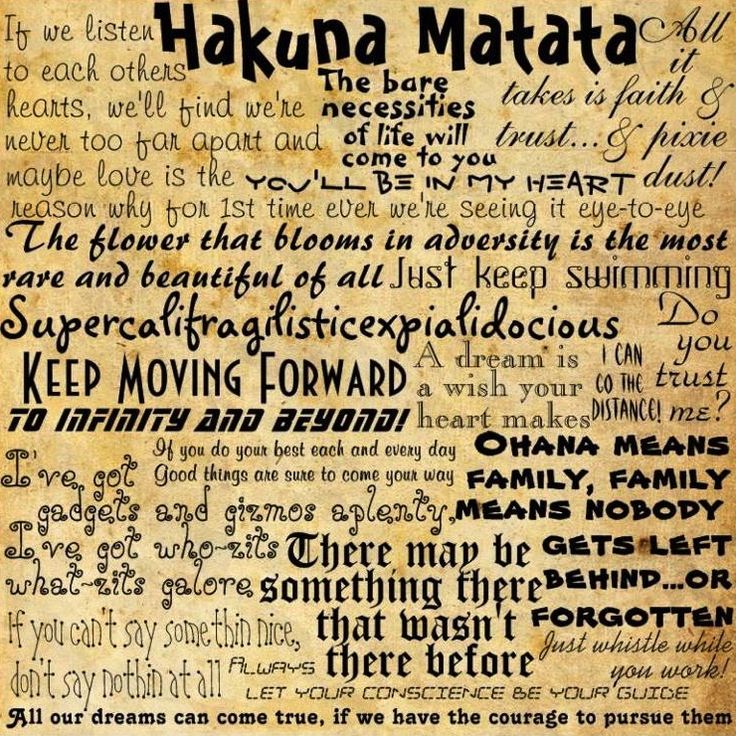 If we listen
to each others
hearts, we'll find we're
never too far apart and
maybe love is the
reason why for 1st time ever we're seeing it eye-to-eye
Hakuna Matata
The bare
necessities
of life will
come to you
All
it
takes is faith &
trust...& pixie
dust!
YOU'LL BE IN MY HEART
The flower that blooms in adversity is the most
rare and beautiful of all
Just keep swimming
Supercalifragilisticexpialidocious
Do
you
trust
me?
KEEP MOVING FORWARD
A dream is
a wish your
heart makes
I CAN
GO THE
DISTANCE!
TO INFINITY AND BEYOND!
If you do your best each and every day
Good things are sure to come your way
I've got
gadgets and gizmos aplenty,
I've got who-zits
what-zits galore
OHANA MEANS
FAMILY, FAMILY
MEANS NOBODY
GETS LEFT
BEHIND...OR
FORGOTTEN
There may be
something there
that wasn't
there before
If you can't say somethin nice,
don't say nothin at all
Just whistle while
you work!
ALWAYS
LET YOUR CONSCIENCE BE YOUR GUIDE
All our dreams can come true, if we have the courage to pursue them